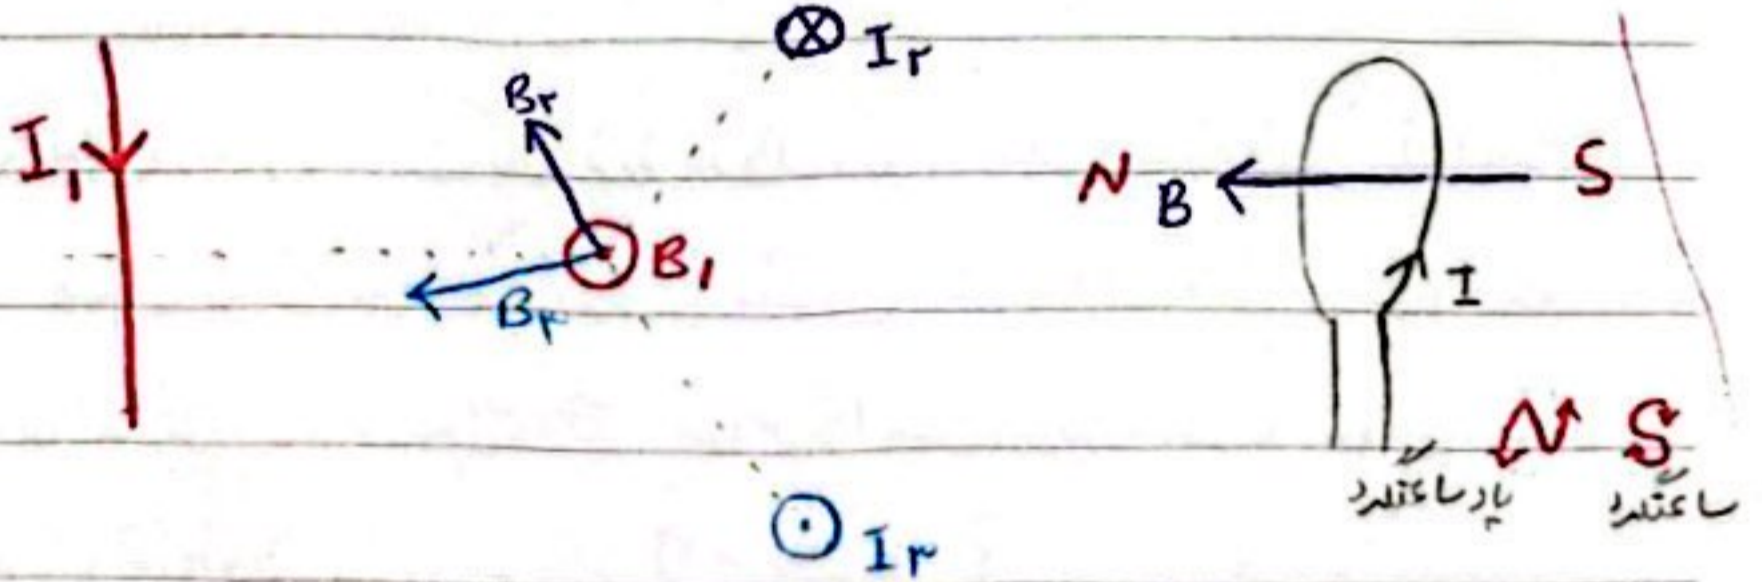 ⊗ I۲
I₁
B۲
B₁
B۳
⊙ I۳
N B S
I
N S
پاد ساعتگرد ساعتگرد